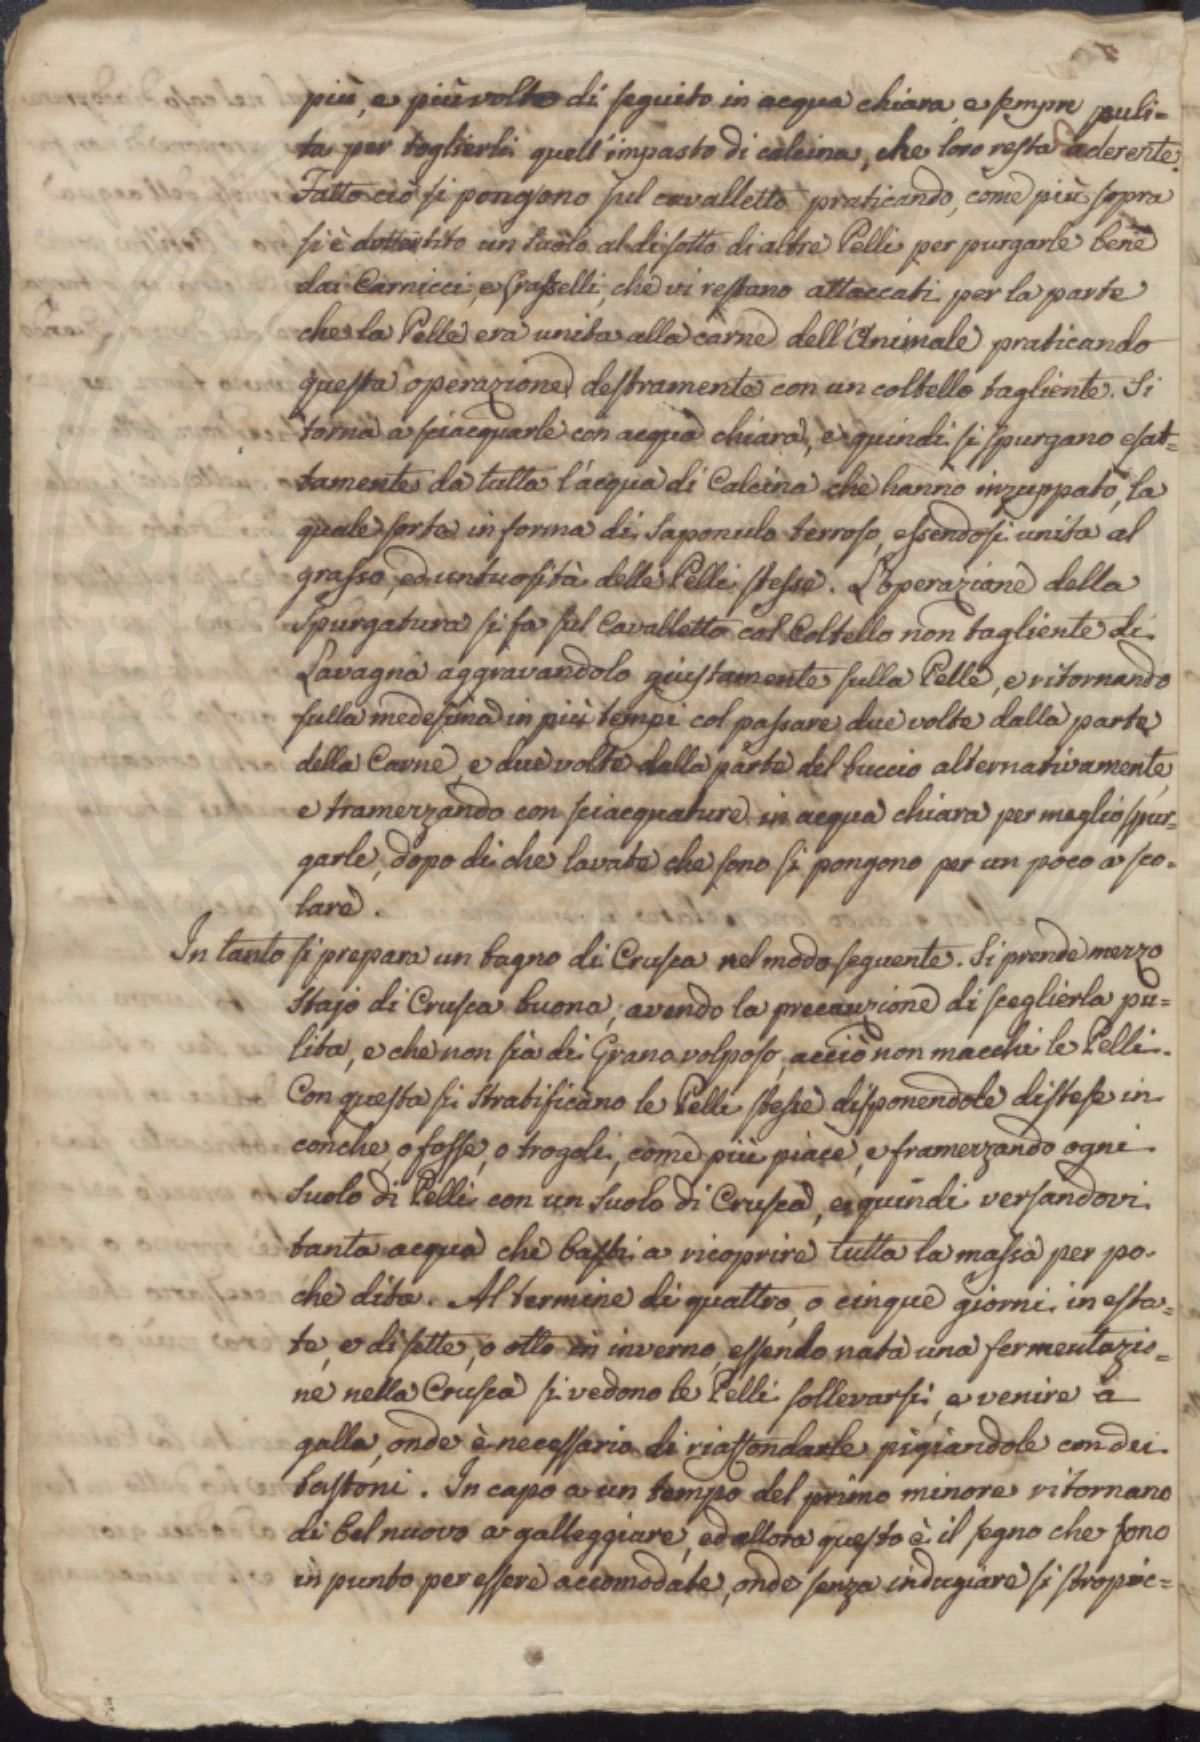 più, e più volte di seguito in acqua chiara, e sempre puli=
ta per toglierli quell'impasto di calcina, che loro resta aderente.
Fatto ciò si pongono sul cavalletto praticando, come più sopra
si è detto un suolo al disotto di altre Pelli per purgarle bene
dai Carnicci, e Grasselli, che vi restano attaccati per la parte
che la Pelle era unita alla carne dell'Animale praticando
questa operazione destramente con un coltello tagliente. Si
torna a sciacquarle con acqua chiara, e quindi si spurgano esat=
tamente da tutta l'acqua di Calcina che hanno inzuppato, la
quale sorte in forma di Saponulo terroso, essendosi unita al
grasso, ed untuosità delle Pelli stesse. L'operazione della
Spurgatura si fa sul Cavalletto col Coltello non tagliente di
Lavagna aggravandolo giustamente sulla Pelle, e ritornando
sulla medesima in più tempi col passare due volte dalla parte
della Carne, e due volte dalla parte del buccio alternativamente,
e tramezzando con sciacquature in acqua chiara per meglio spur=
garle, dopo di che lavate che sono si pongono per un poco a sco=
lare.
In tanto si prepara un bagno di Crusca nel modo seguente. Si prende mezzo
Stajo di Crusca buona, avendo la precauzione di sceglierla pu=
lita, e che non sia di Grano volposo, acciò non macchi le Pelli.
Con questa si stratificano le Pelli stesse disponendole distese in
conche, o fosse, o trogoli, come più piace, e framezzando ogni
Suolo di Pelli con un Suolo di Crusca, e quindi versandovi
tanta acqua che basti a ricoprire tutta la massa per po-
che dita. Al termine di quattro, o cinque giorni in esta=
te, e di sette, o otto in inverno, essendo nata una fermentazio=
ne nella Crusca si vedono le Pelli sollevarsi, e venire a
galla, onde è necessario di riaffondarle pigiandole con dei
bastoni. In capo a un tempo del primo minore ritornano
di bel nuovo a galleggiare, ed allora questo è il segno che sono
in punto per essere accomodate, onde senza indugiare si stropic=